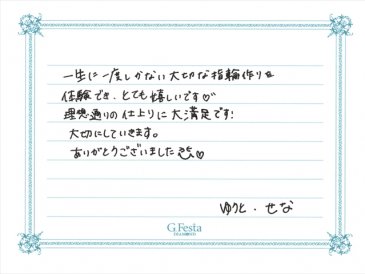 一生に一度しかない大切な指輪作りを
体験でき、とても嬉しいです♡
理想通りの仕上りに大満足です!
大切にしていきます。
ありがとうございました♡
ゆうと・せな
G.Festa